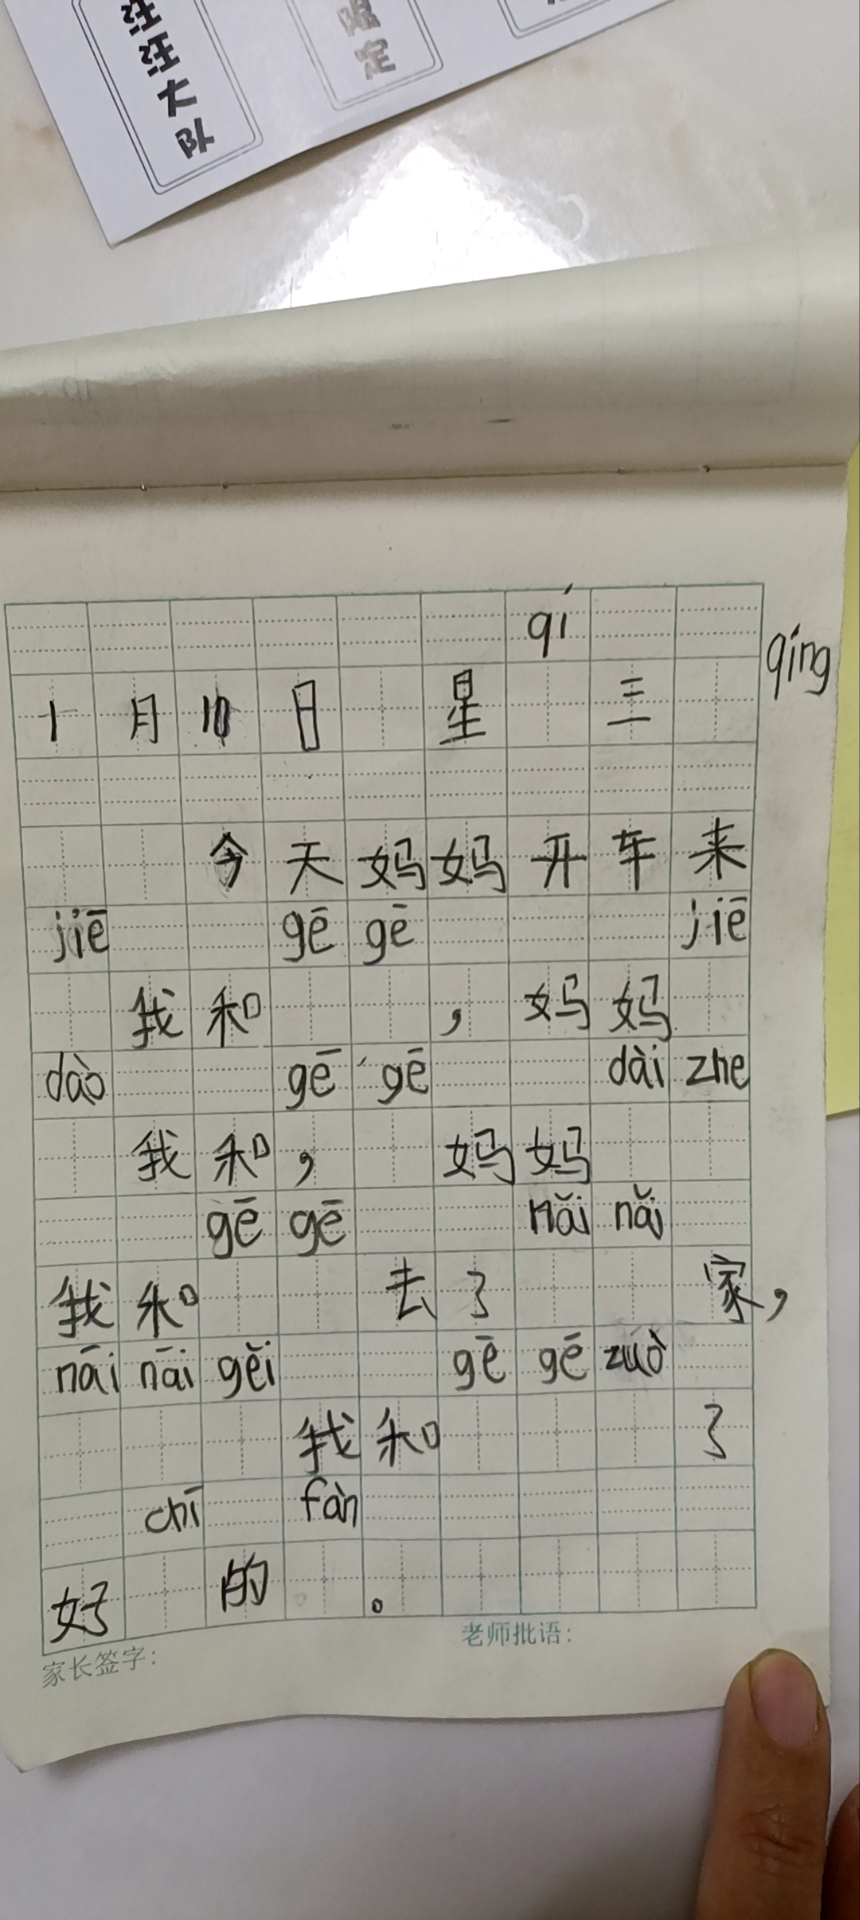 汪汪大队
限定
qí
qíng
1月10日 星 三
今天妈妈开车来
jiē gē gē jiē
我和 ，妈妈
dào gē gē dài zhe
我和， 妈妈
gē gē nǎi nǎi
我和 去了 家，
nāi nāi gěi gē gē zuò
我和 了
chī fàn
好 的 。
家长签字：
老师批语：